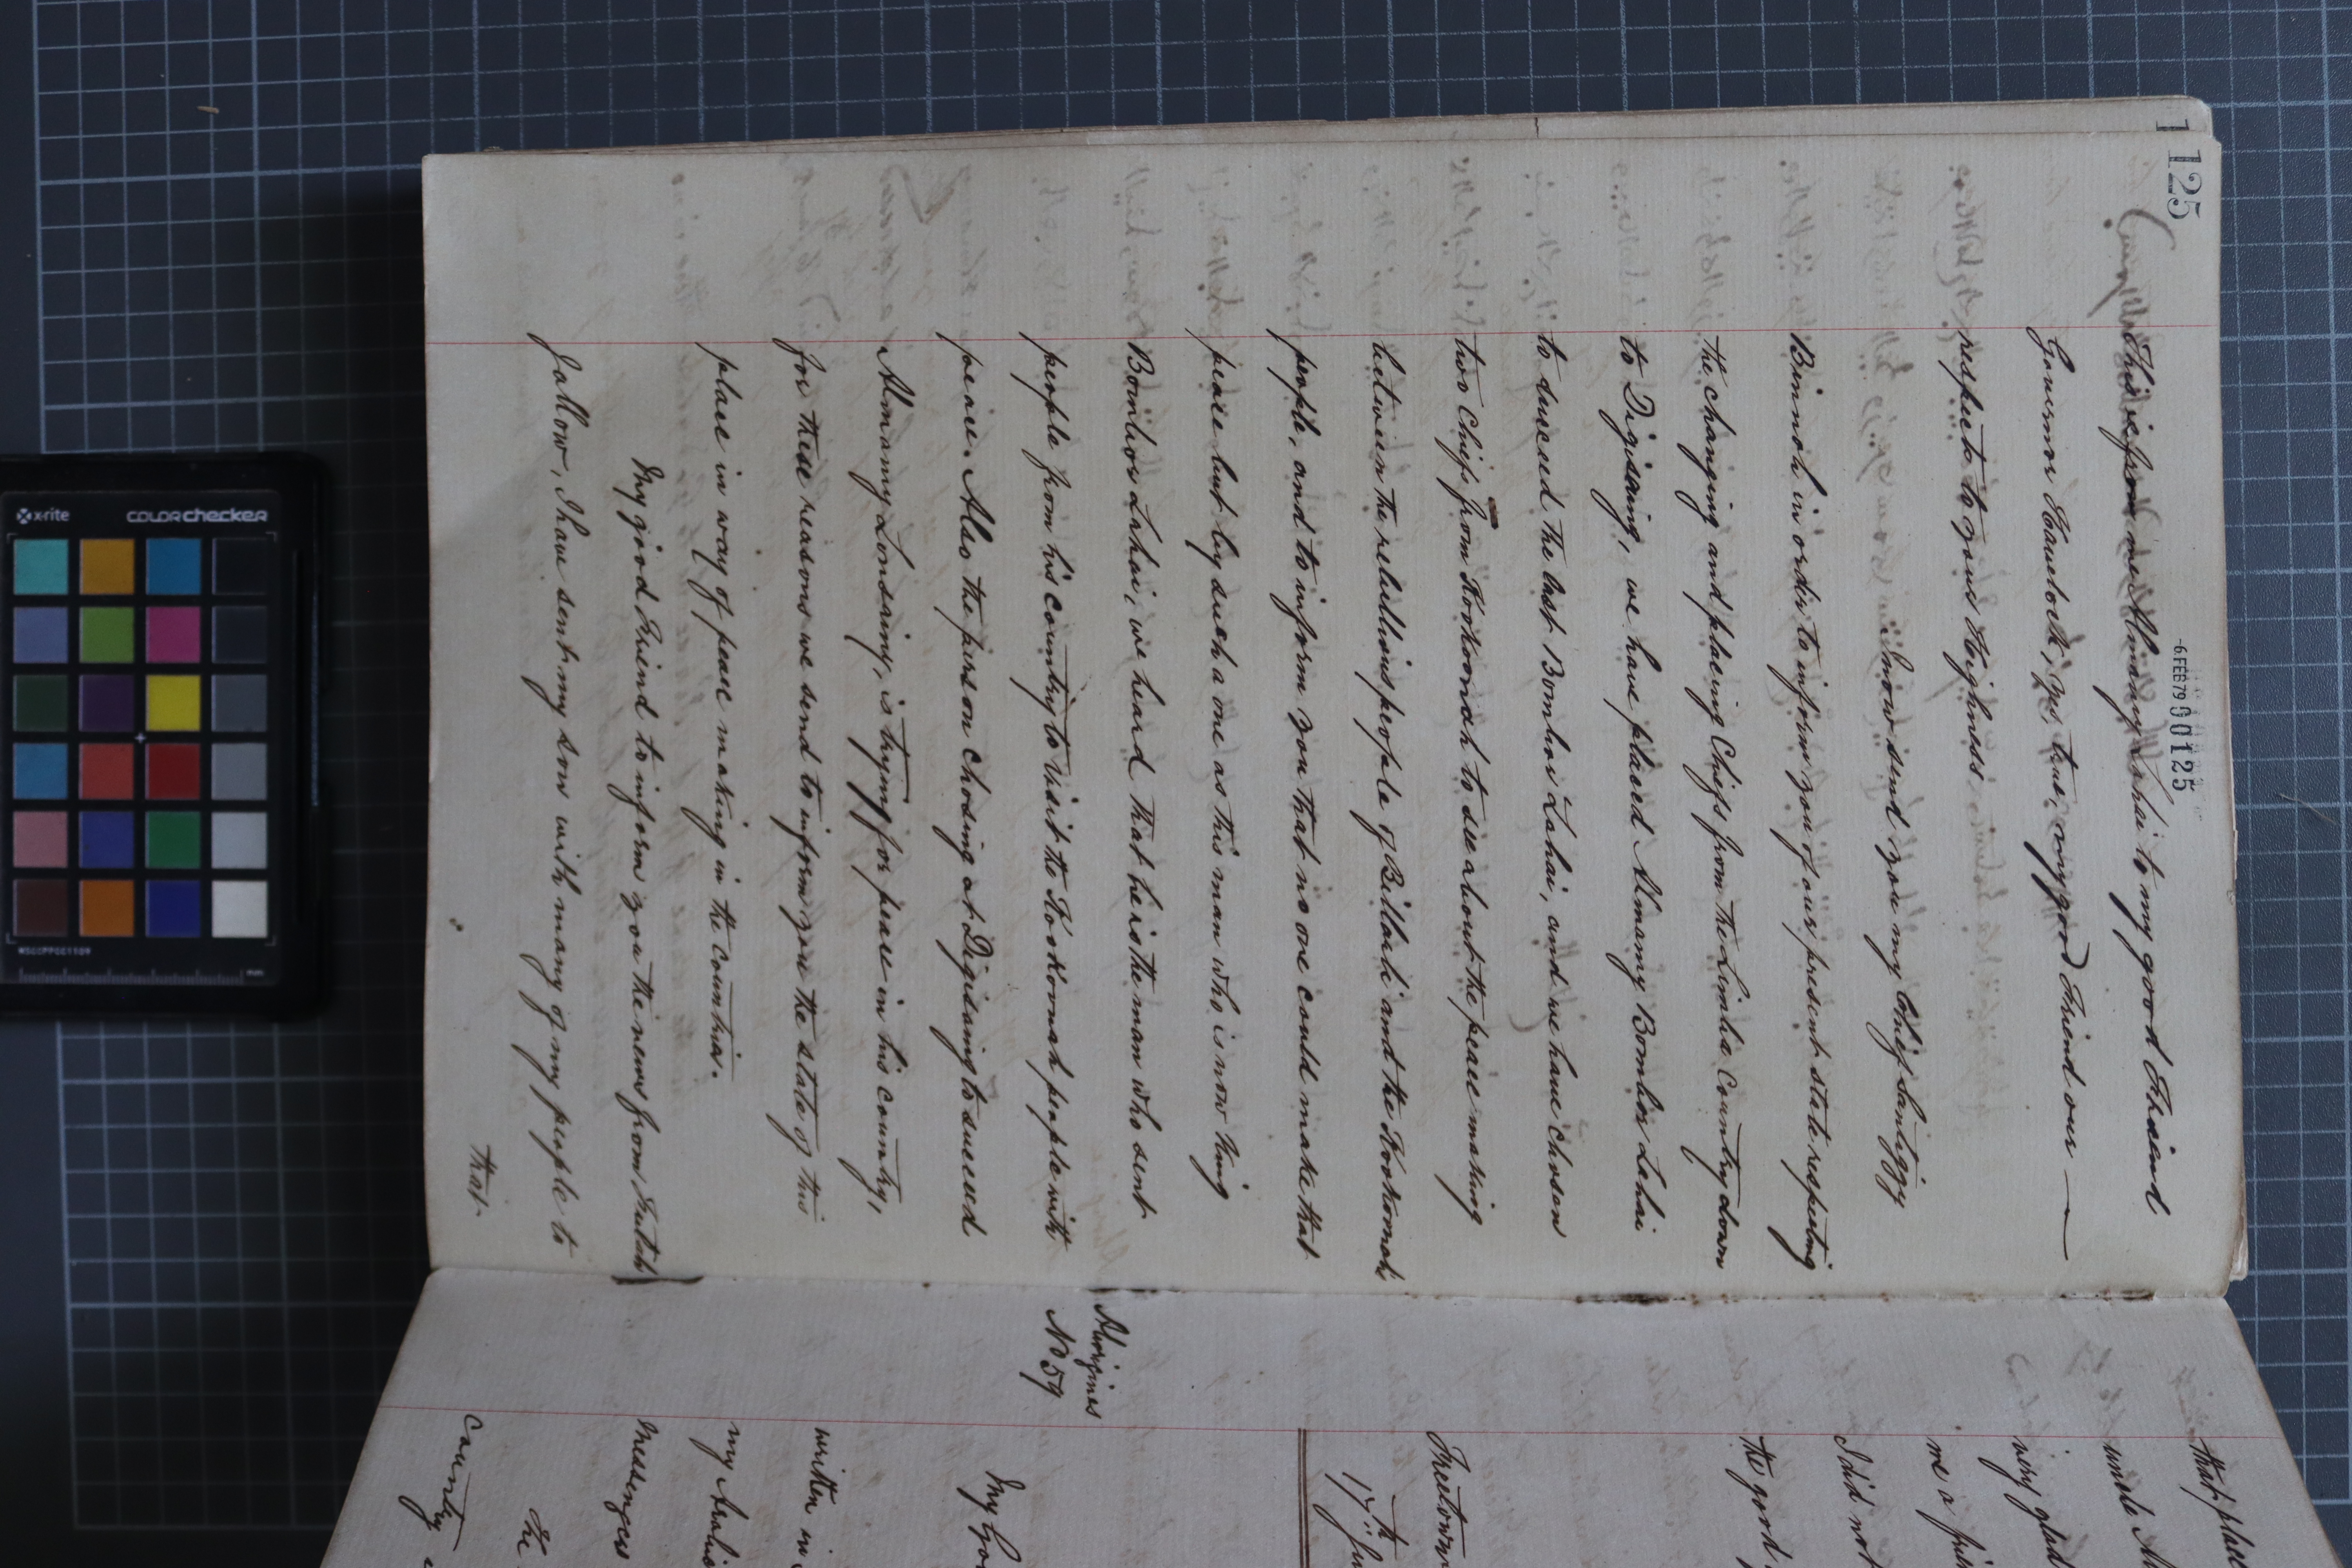 125
-6 FEB 79 00125
This is from me Almamy Lahai to my good Friend
Governor Havelock, yes, true, my good Friend our —
respects to your Highness
I now send you my Chief Santiggy
Binnah in order to inform you of our present state respecting
the changing and placing Chiefs from the Limba Country down
to Digising, we have placed Almamy Bombor Lahai
to succeed the last Bombor Lahai, and we have chosen
two Chiefs from Kookoonah to see about the peace making
between the rebellious people of Billarli and the Kookoonah
people, and to inform you that no one could make that
peace but by such a one as this man who is now King
Bombor Lahai, we heard that he is the man who sent
people from his country to visit the Kookoonah people with
peace. Also the person chosing at Digising to succeed
Almamy Lonsainy, is trying for peace in his country,
for these reasons we send to inform you the state of this
place in way of peace making in the countries.
My good Friend to inform you the news from Futah
Jallow, I have sent my son with many of my people to
that
that plac
uncle A
very glad
me a
I did not
the good
Freetown
17th
Aborigines
No 59
My
written in
my
Messenger
The
country